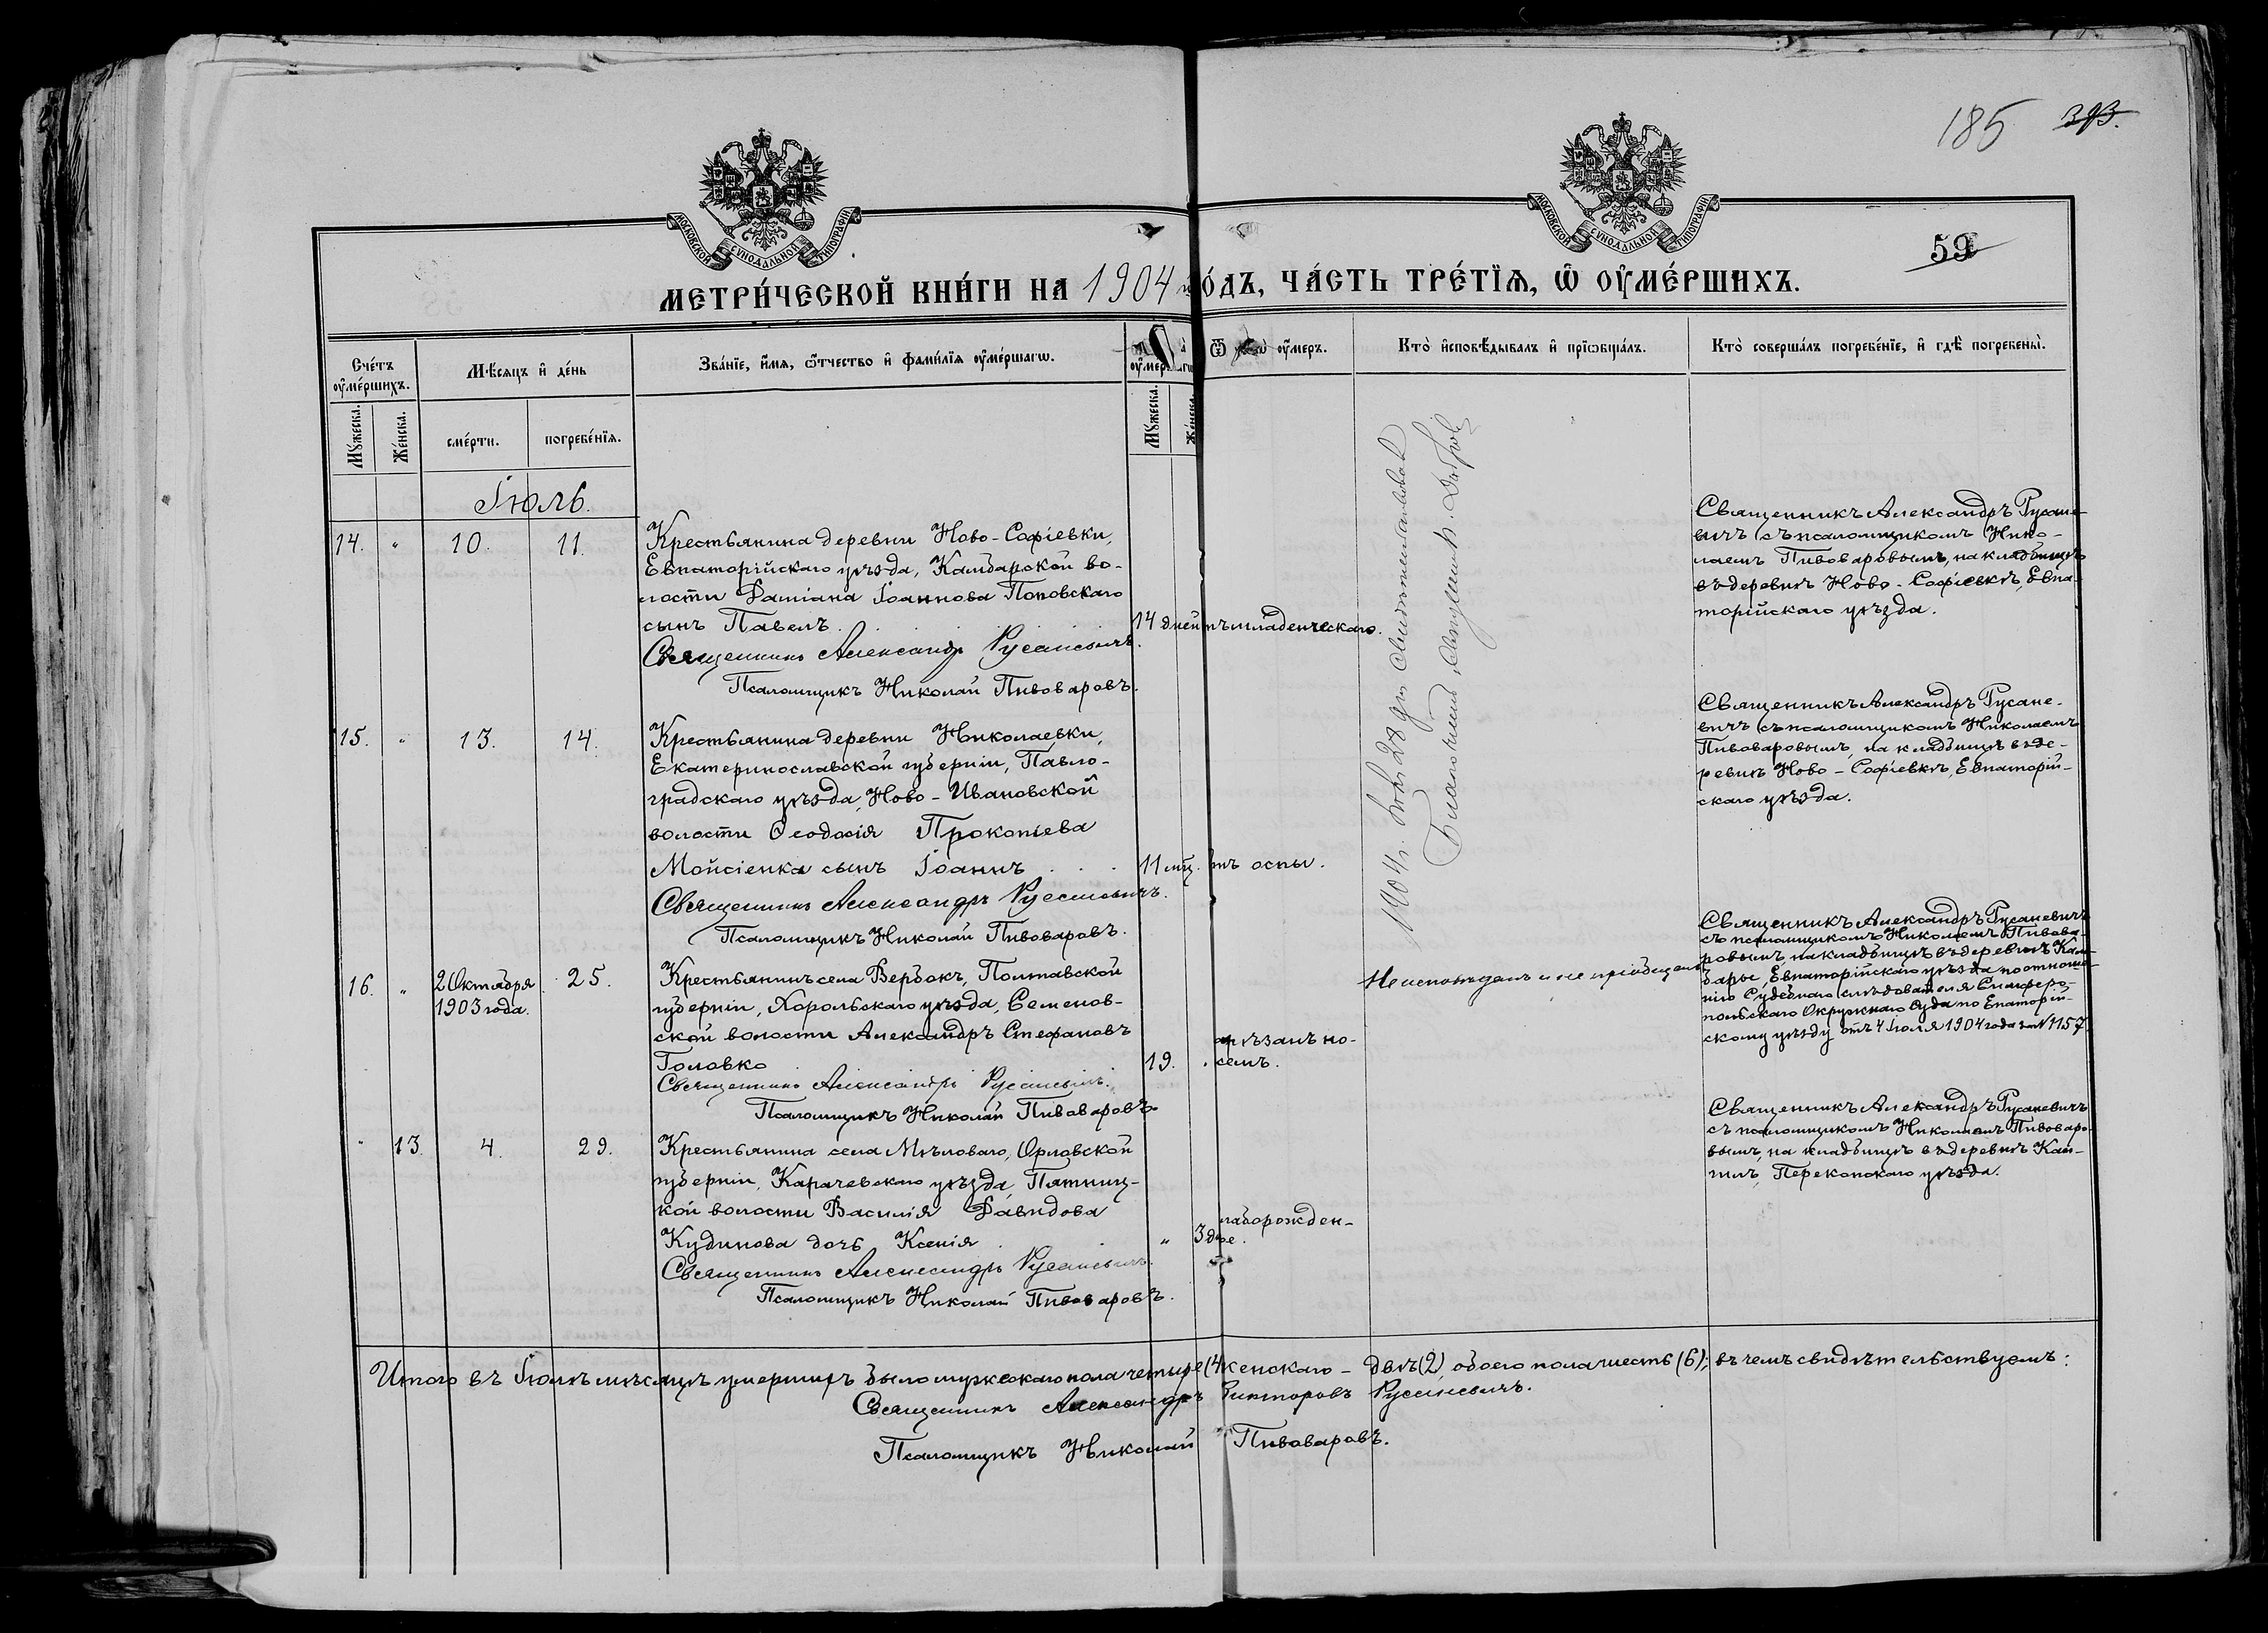 185 393.
МОСКОВСКОЙ СѴНОДАЛЬНОЙ ТИПОГРАФІИ
МОСКОВСКОЙ СѴНОДАЛЬНОЙ ТИПОГРАФІИ
59
МЕТРИ́ЧЕСКОЙ КНИ́ГИ НА 1904 го́дъ, ЧА́СТЬ ТРЕ́ТЇѦ, Ѡ ОУ҆МЕ́РШИХЪ.
Сче́тъ оу҆ме́ршихъ.
Мѣ́сяцъ и҆ де́нь
Зва́нїе, и҆́мѧ, ѻ҆́тчество и҆ фами́лїѧ оу҆ме́ршагѡ.
Ѿ чегѡ̀ оу҆́меръ.
Кто̀ и҆сповѣ́дывалъ и҆ прїѡбща́лъ.
Кто̀ соверша́лъ погребе́нїе, и҆ гдѣ̀ погребены̀.
Му́жеска.
Же́нска.
сме́рти.
погребе́нїѧ.
Му́жеска.
Же́нска.
Іюль.
14. " 10. 11.
Крестьянина деревни Ново-Софіевки,
Евпаторійскаго уѣзда, Камбарской во-
лости Даміана Іоаннова Поповскаго
сынъ Павелъ.
14 дней
отъ младенческаго.
Священникъ Александръ Русаневичъ.
Псаломщикъ Николай Пивоваровъ.
Священникъ Александръ Русане-
вичъ съ псаломщикомъ Нико-
лаемъ Пивоваровымъ, на кладбищѣ
въ деревнѣ Ново-Софіевкѣ, Евпа-
торійскаго уѣзда.
15. " 13. 14.
Крестьянина деревни Николаевки,
Екатеринославской губерніи, Павло-
градскаго уѣзда, Ново-Ивановской
волости Ѳеодосія Прокопіева
Мойсіенка сынъ Іоаннъ
11 мц.
отъ оспы.
Священникъ Александръ Русаневичъ.
Псаломщикъ Николай Пивоваровъ.
Священникъ Александръ Русане-
вичъ съ псаломщикомъ Николаемъ
Пивоваровымъ, на кладбищѣ въ де-
ревнѣ Ново-Софіевкѣ, Евпаторій-
скаго уѣзда.
1904 г.
28 дня
16. " 2 Октября 25.
1903 года.
Крестьянинъ села Вербокъ, Полтавской
губерніи, Хорольскаго уѣзда, Семенов-
ской волости Александръ Стефановъ
Головко
19.
зарѣзанъ но-
Священникъ Александръ Русаневичъ.
Псаломщикъ Николай Пивоваровъ.
Не исповѣданъ и не пріобщенъ
Священникъ Александръ Русаневичъ
съ псаломщикомъ Николаемъ Пивова-
ровымъ, на кладбищѣ въ деревнѣ Кам-
баръ, Евпаторійскаго уѣзда по отноше-
нію Судебнаго слѣдователя Симферо-
польскаго Окружнаго Суда по Евпаторій-
скому уѣзду отъ 4 Іюля 1904 года за №1157.
" 13. 4. 29.
Крестьянина села Мѣловаго, Орловской
губерніи, Карачевскаго уѣзда, Пятниц-
кой волости Василія Давидова
Кудинова дочь Ксенія
" 3 д.
слаборожден-
Священникъ Александръ Русаневичъ.
Псаломщикъ Николай Пивоваровъ.
Священникъ Александръ Русаневичъ
съ псаломщикомъ Николаемъ Пивоваро-
вымъ, на кладбищѣ въ деревнѣ
Перекопскаго уѣзда.
Итого въ Іюлѣ мѣсяцѣ умершихъ было мужескаго пола четыре (4) женскаго - двѣ (2), обоего пола шесть (6); въ чемъ свидѣтельствуемъ:
Священникъ Александръ Викторовъ Русаневичъ.
Псаломщикъ Николай Пивоваровъ.